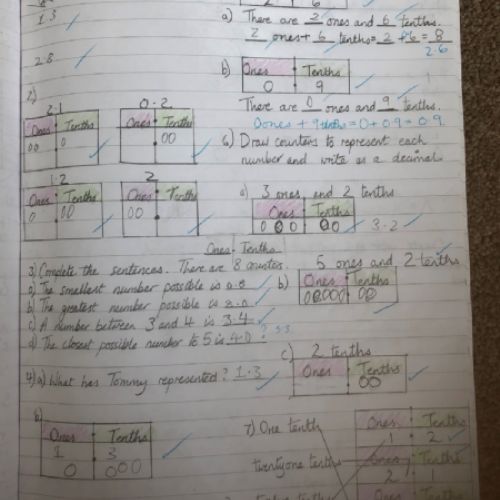 1.3
2.8
2)
2.1
0.2
Ones Tenths
Ones Tenths
00 0
00
1.2
2
Ones Tenths
Ones Tenths
0 00
00
Ones Tenths
3) Complete the sentences. There are 8 counters.
a) The smallest number possible is 0.8
b) The greatest number possible is 8.0
c) A number between 3 and 4 is 3.4
d) The closest possible number to 5 is 4.0
4) a) What has Tommy represented? 1.3
b)
Ones Tenths
1 3
0 000
a) There are 2 ones and 6 tenths.
2 ones + 6 tenths = 2 + 0.6 = 8
2.6
b)
Ones Tenths
0 9
There are 0 ones and 9 tenths.
0 ones + 9 tenths = 0 + 0.9 = 0.9
6) Draw counters to represent each
number and write as a decimal.
a) 3 ones and 2 tenths
Ones Tenths
000 00
3.2
5 ones and 2 tenths
b)
Ones Tenths
00000 00
c) 2 tenths
Ones Tenths
00
7) One tenth
Ones Tenths
1 2
twenty one tenths
Ones Tenths
2 1
Ones Tenths